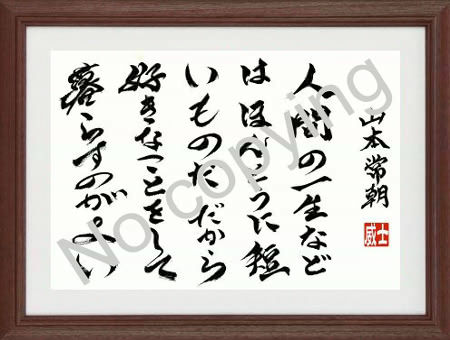 山本常朝
威士
人間の一生など
はほんとうに短
いものだ だから
好きなことをして
暮らすのがよい
No copying